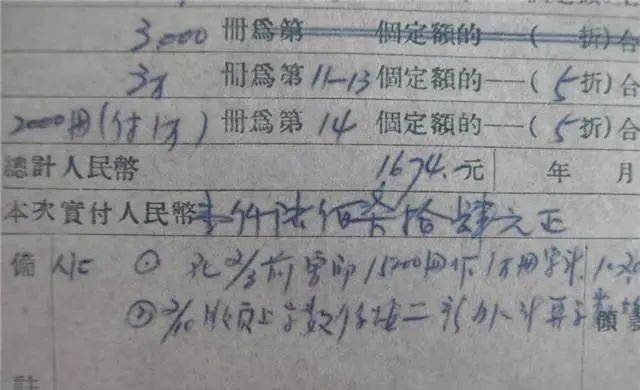 3,000 冊爲第 個定額的—( 折)合
3万 冊爲第 11—13 個定額的—( 5 折)合
2000冊(付1万) 冊爲第 14 個定額的—( 5 折)合
總計人民幣 1674.元 年 月
本次實付人民幣壹仟陸佰柒拾肆元正
備 ① 2/3前 印15200冊 1万冊
② 2/10 版頁上字数 二 計算 領
註